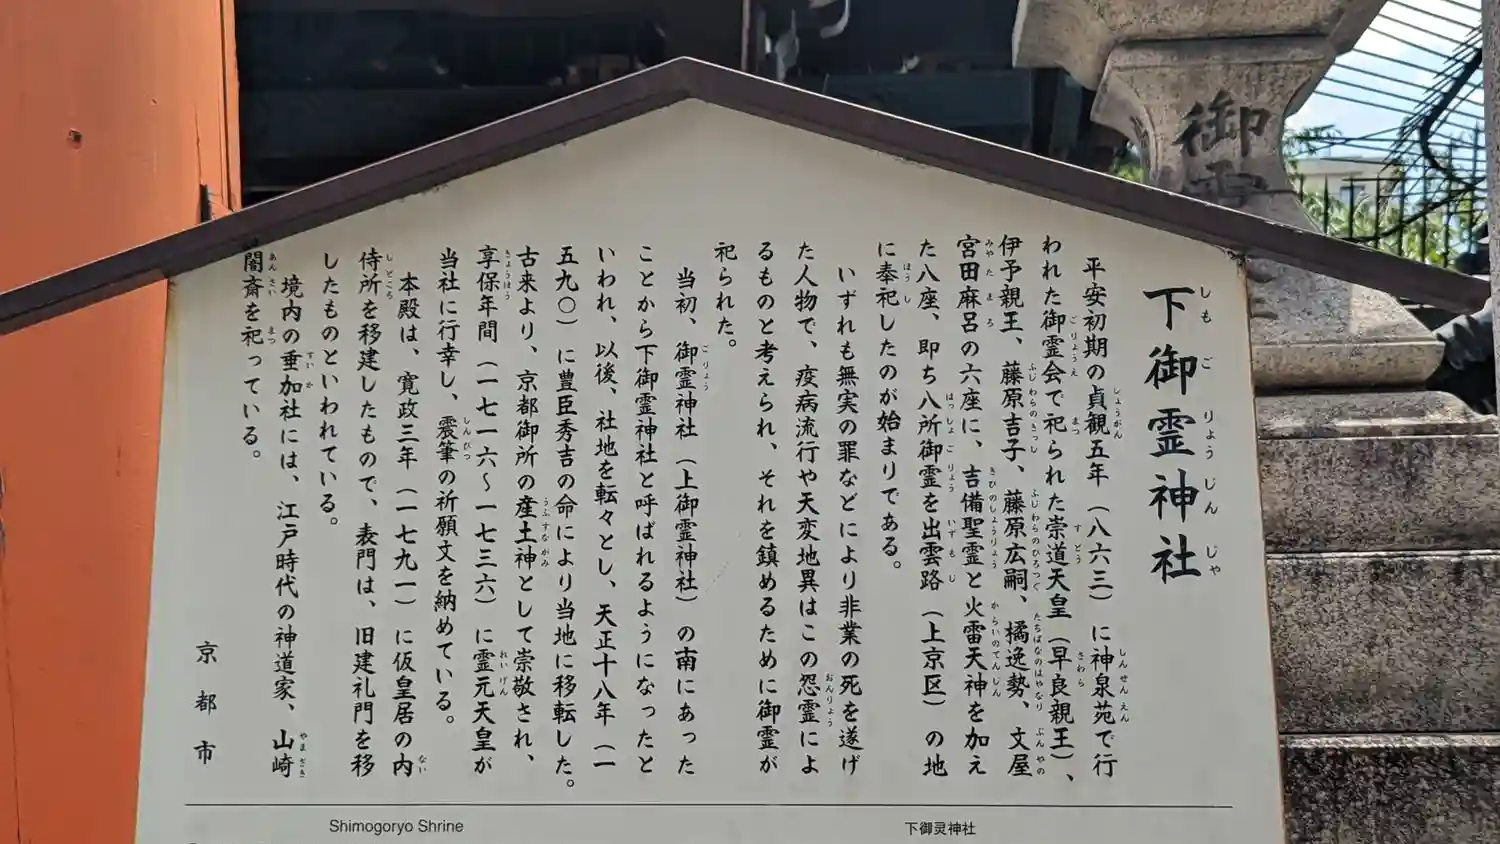 下御霊神社
しもごりょうじんじゃ
平安初期の貞観五年（八六三）に神泉苑で行
われた御霊会で祀られた崇道天皇（早良親王）、
伊予親王、藤原吉子、藤原広嗣、橘逸勢、文屋
宮田麻呂の六座に、吉備聖霊と火雷天神を加え
た八座、即ち八所御霊を出雲路（上京区）の地
に奉祀したのが始まりである。
いずれも無実の罪などにより非業の死を遂げ
た人物で、疫病流行や天変地異はこの怨霊によ
るものと考えられ、それを鎮めるために御霊が
祀られた。
当初、御霊神社（上御霊神社）の南にあった
ことから下御霊神社と呼ばれるようになったと
いわれ、以後、社地を転々とし、天正十八年（一
五九〇）に豊臣秀吉の命により当地に移転した。
古来より、京都御所の産土神として崇敬され、
享保年間（一七一六～一七三六）に霊元天皇が
当社に行幸し、震筆の祈願文を納めている。
本殿は、寛政三年（一七九一）に仮皇居の内
侍所を移建したもので、表門は、旧建礼門を移
したものといわれている。
境内の垂加社には、江戸時代の神道家、山崎
闇斎を祀っている。
京都市
Shimogoryo Shrine
下御灵神社
御